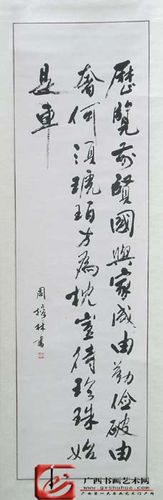 歷覽前賢國與家成由勤儉破由
奢何須琥珀方為枕豈待珍珠始
是車
周榕林書
广西书画艺术网
www.gxshuhua.com